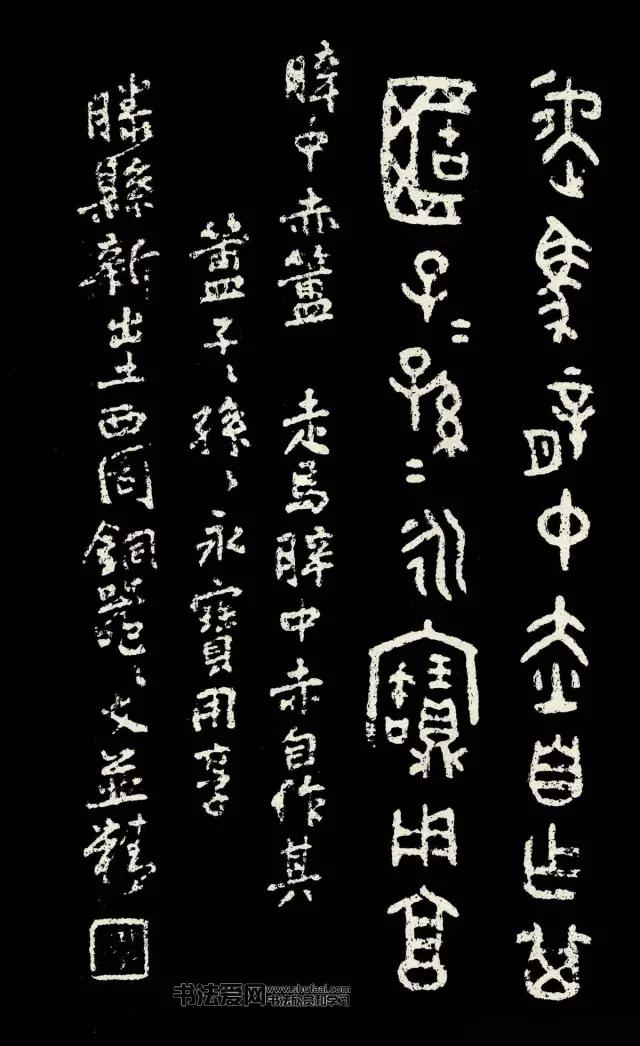 走馬薛中赤自乍其
簠子〻孫〻永寶用享
薛中赤簠 走馬薛中赤自作其
簠子〻孫〻永寶用享
滕縣新出土西周銅器〻文並精
书法爱网 www.shufaai.com
书法欣赏和学习